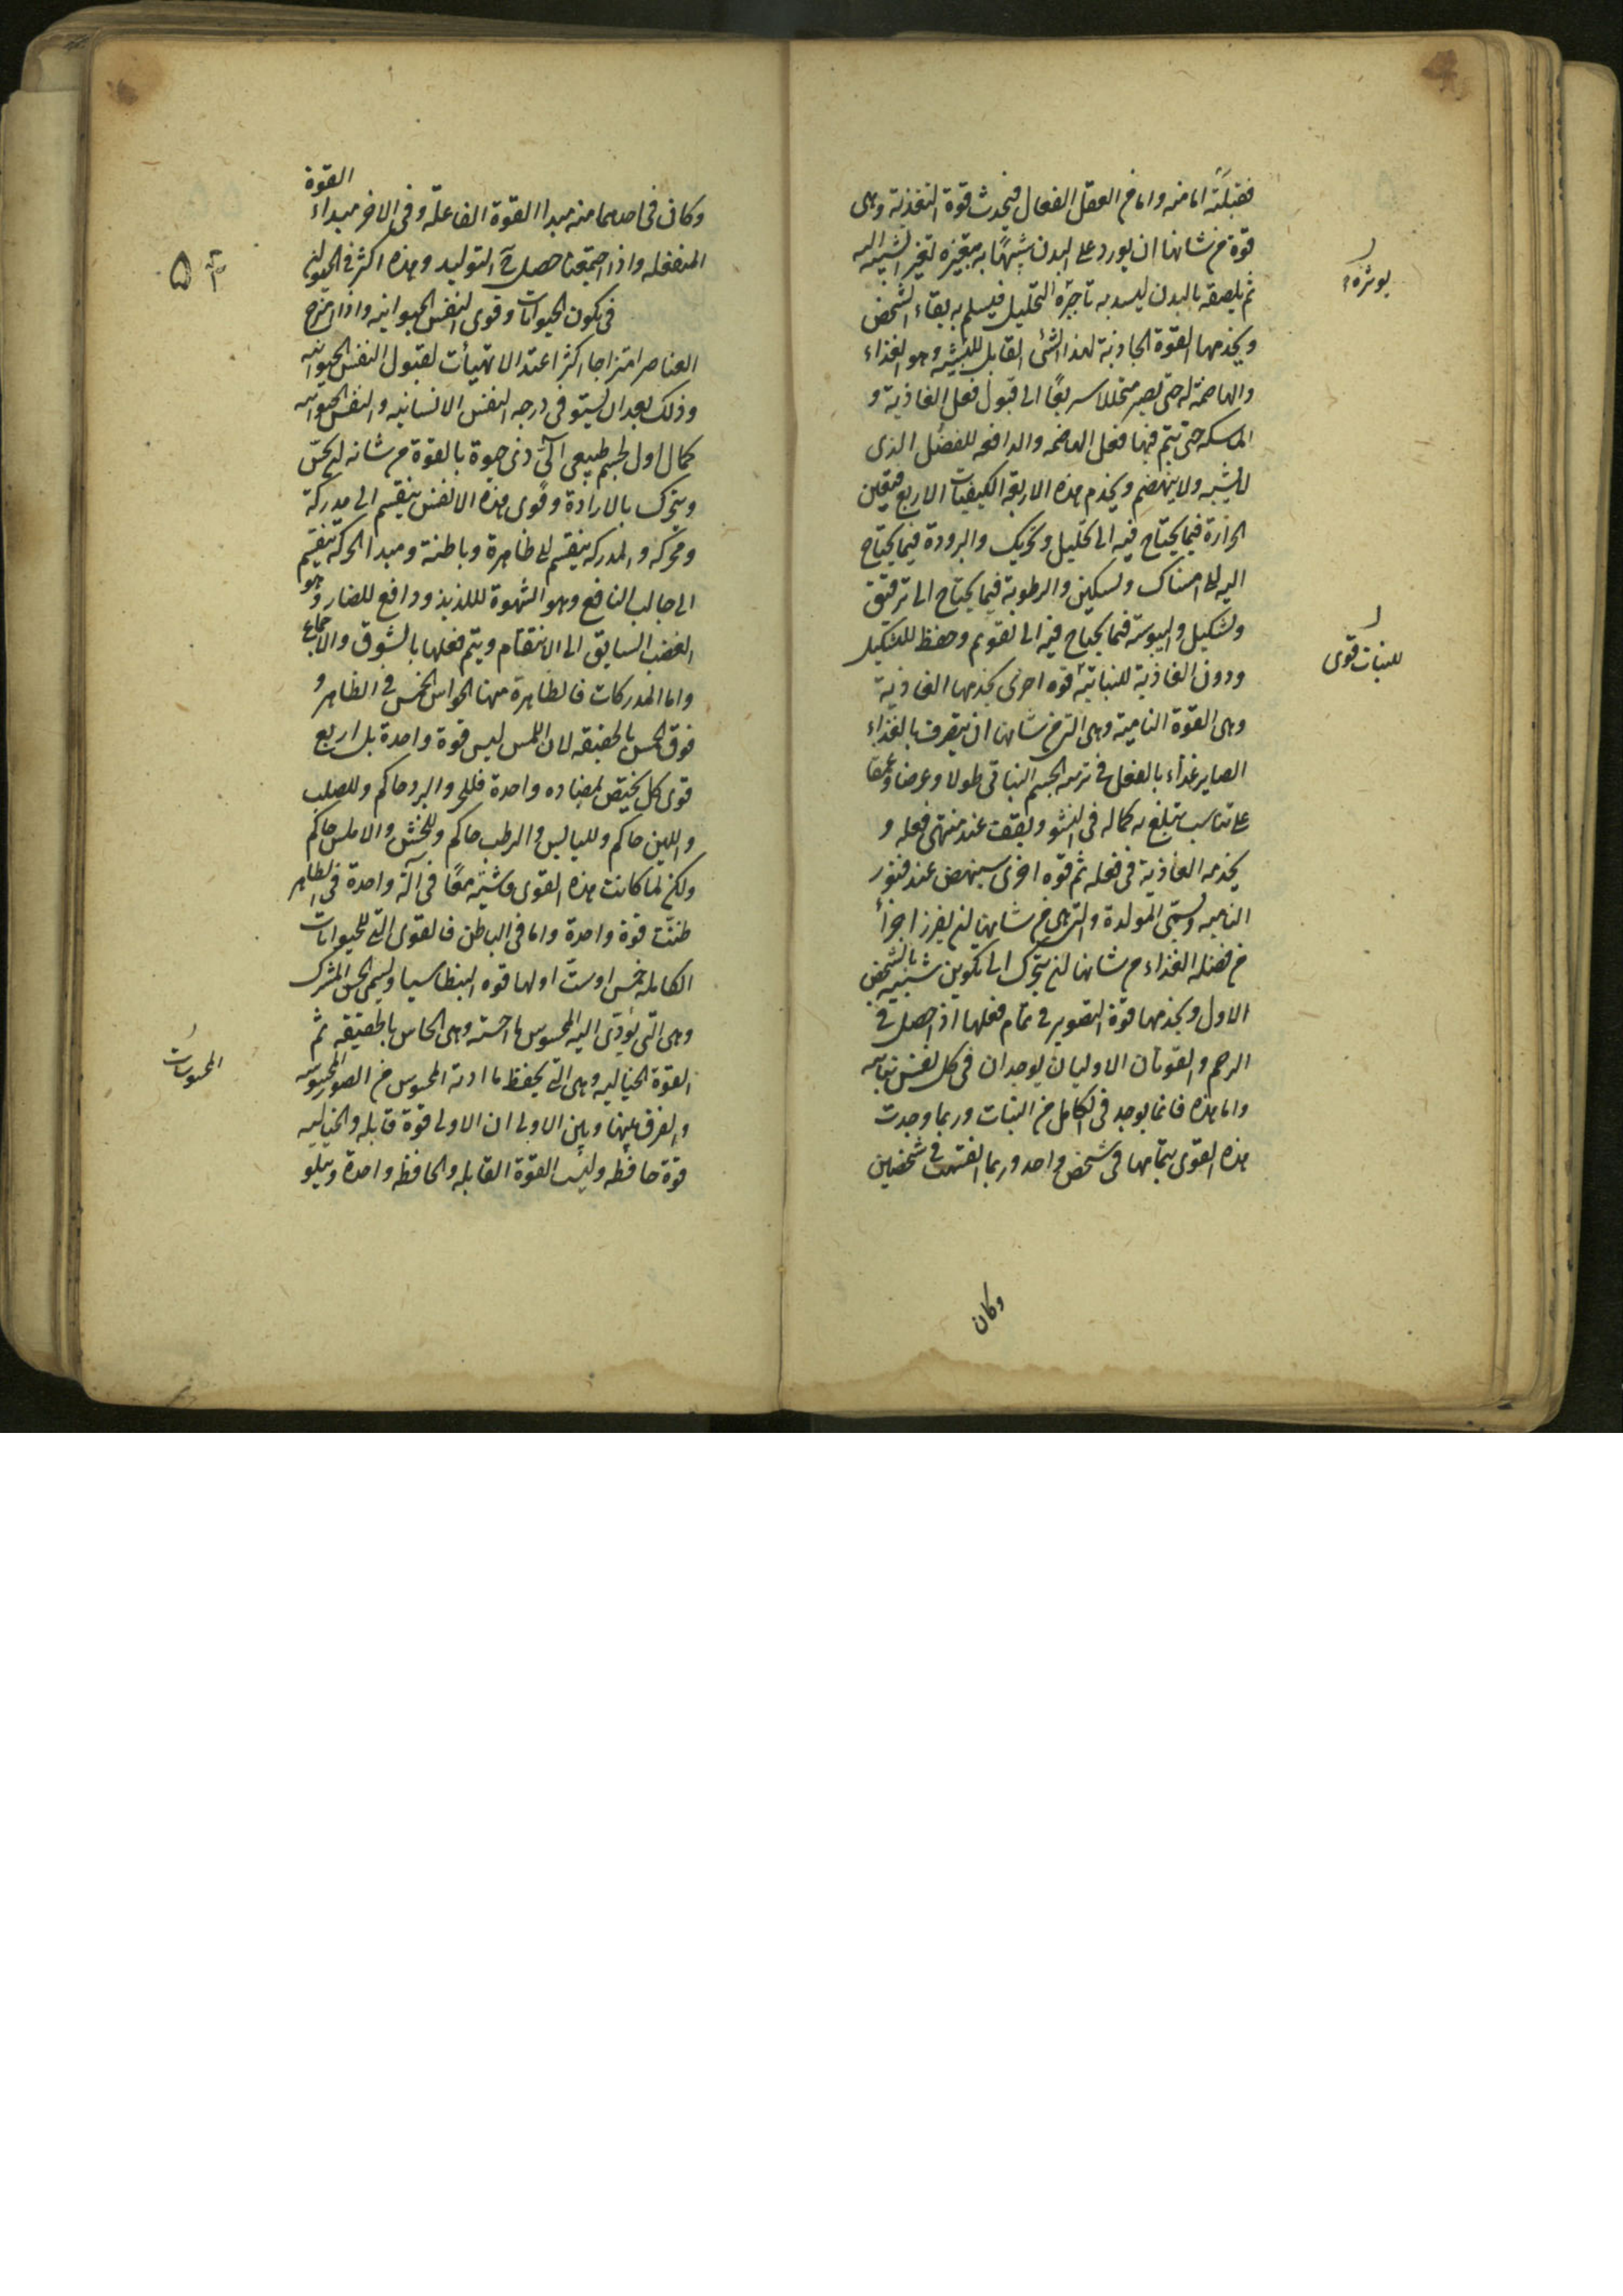 فقبلته اما منه واما من العقل الفعال فيحدث قوة التغذية وهى
قوة من شانها ان يورد على البدن شبيها به بتغيره لتغير الشبيه اليه
ثم يلصقه بالبدن ليسد به التحليل فيسلم به بقاء الشخص
ويخدمها القوة الجاذبة لهذا الشئ القابل للتشبيه وهو الغذاء
والهاضمة له حتى يصير متحللا سريعا الى قبول فعل الغاذية و
الماسكه حتى يتم فيها فعل الهاضمه والدافعه للفضل الذى
لا يشبه ولا ينهضم ويخدم هذه الاربعة الكيفيات الاربع فيعين
الحرارة فيما يحتاج فيه الى تحليل وتحريك والبرودة فيما يحتاج
اليه الى امساك وتسكين والرطوبة فيما يحتاج الى ترقيق
وتشكيل واليبوسة فيما يحتاج فيه الى تقويم وحفظ للتشكيل
ودون الغاذية للنباتية قوه اخرى يخدمها الغاذية
وهى القوة النامية وهى التى من شانها ان يتصرف بالغذاء
الصاير غذاء بالفعل فى تربيه الجسم النباتى طولا وعرضا وعمقا
على تناسب يبلغ به كماله فى النشو ويقف عند منتهى فعله و
يخدمه الغاذية فى فعله ثم قوه اخرى سينهض عند فتور
الناميه ويسمى المولدة والتى هى من شانها ان يفرز اجزأ
من فضله الغذاء من شانها ان يتحرك الى تكوين شبيه بالشخص
الاول ويخدمها قوة التصوير فى تمام فعلها اذا حصل فى
الرحم والقوتان الاوليان يوجدان فى كل نفس نباتيه
واما هذه فانما يوجد فى الكامل من النبات وربما وجدت
هذه القوى بتمامها فى شخص واحد وربما انقسمت فى شخصين
يوثره
للنبات قوى
وكان
القوة
وكان فى احدهما منه مبدا القوة الفاعله وفى الاخر مبداء
المنفعله واذا اجتمعتا حصل التوليد وهذه اكثر فى الحيوان
۵
فى تكون الحيوانات وقوى النفس الحيوانيه واذا امتزج
العناصر امتزاجا اكثر اعتدالا تهيأت لقبول النفس الحيوانيه
وذلك بعد ان يستوفى درجه النفس الانسانيه والنفس الحيوانيه
كمال اول لجسم طبيعى آلى ذى حيوة بالقوة من شانه ان يحس
ويتحرك بالارادة وقوى هذه الانفس ينقسم الى مدركة
ومحركه والمدركه ينقسم الى ظاهرة وباطنة ومبدا الحركه ينقسم
الى جالب النافع وهو الشهوة لللذيذ ودافع للضار وهو
الغضب السايق الى الانتقام ويتم فعلها بالشوق والاجماع
واما المدركات فالظاهرة منها الحواس الخمس فى الظاهر و
فوق الخمس بالحقيقه لان اللمس ليس قوة واحدة بل اربع
قوى كل يختص بمضاده واحدة فللحر والبرد حاكم وللصلب
واللين حاكم ولليابس والرطب حاكم وللخشن والاملس حاكم
ولكن لما كانت هذه القوى فاشية معا فى آلة واحدة فى الظاهر
ظنت قوة واحدة واما فى الباطن فالقوى التى للحيوانات
الكامله خمس او ست اولها قوه البنطاسيا ويسمى الحس المشترك
وهى التى يؤدى اليه المحسوس ما احسته وهى الحاس بالحقيقه ثم
القوة الخياليه وهى التى يحفظ ما ادته المحسوس من الصور المحسوسه
والفرق بينها وبين الاولى ان الاولى قوة قابله والخياليه
قوة حافظه وليست القوة القابله والحافظه واحدة ويتلو
المحسوسات